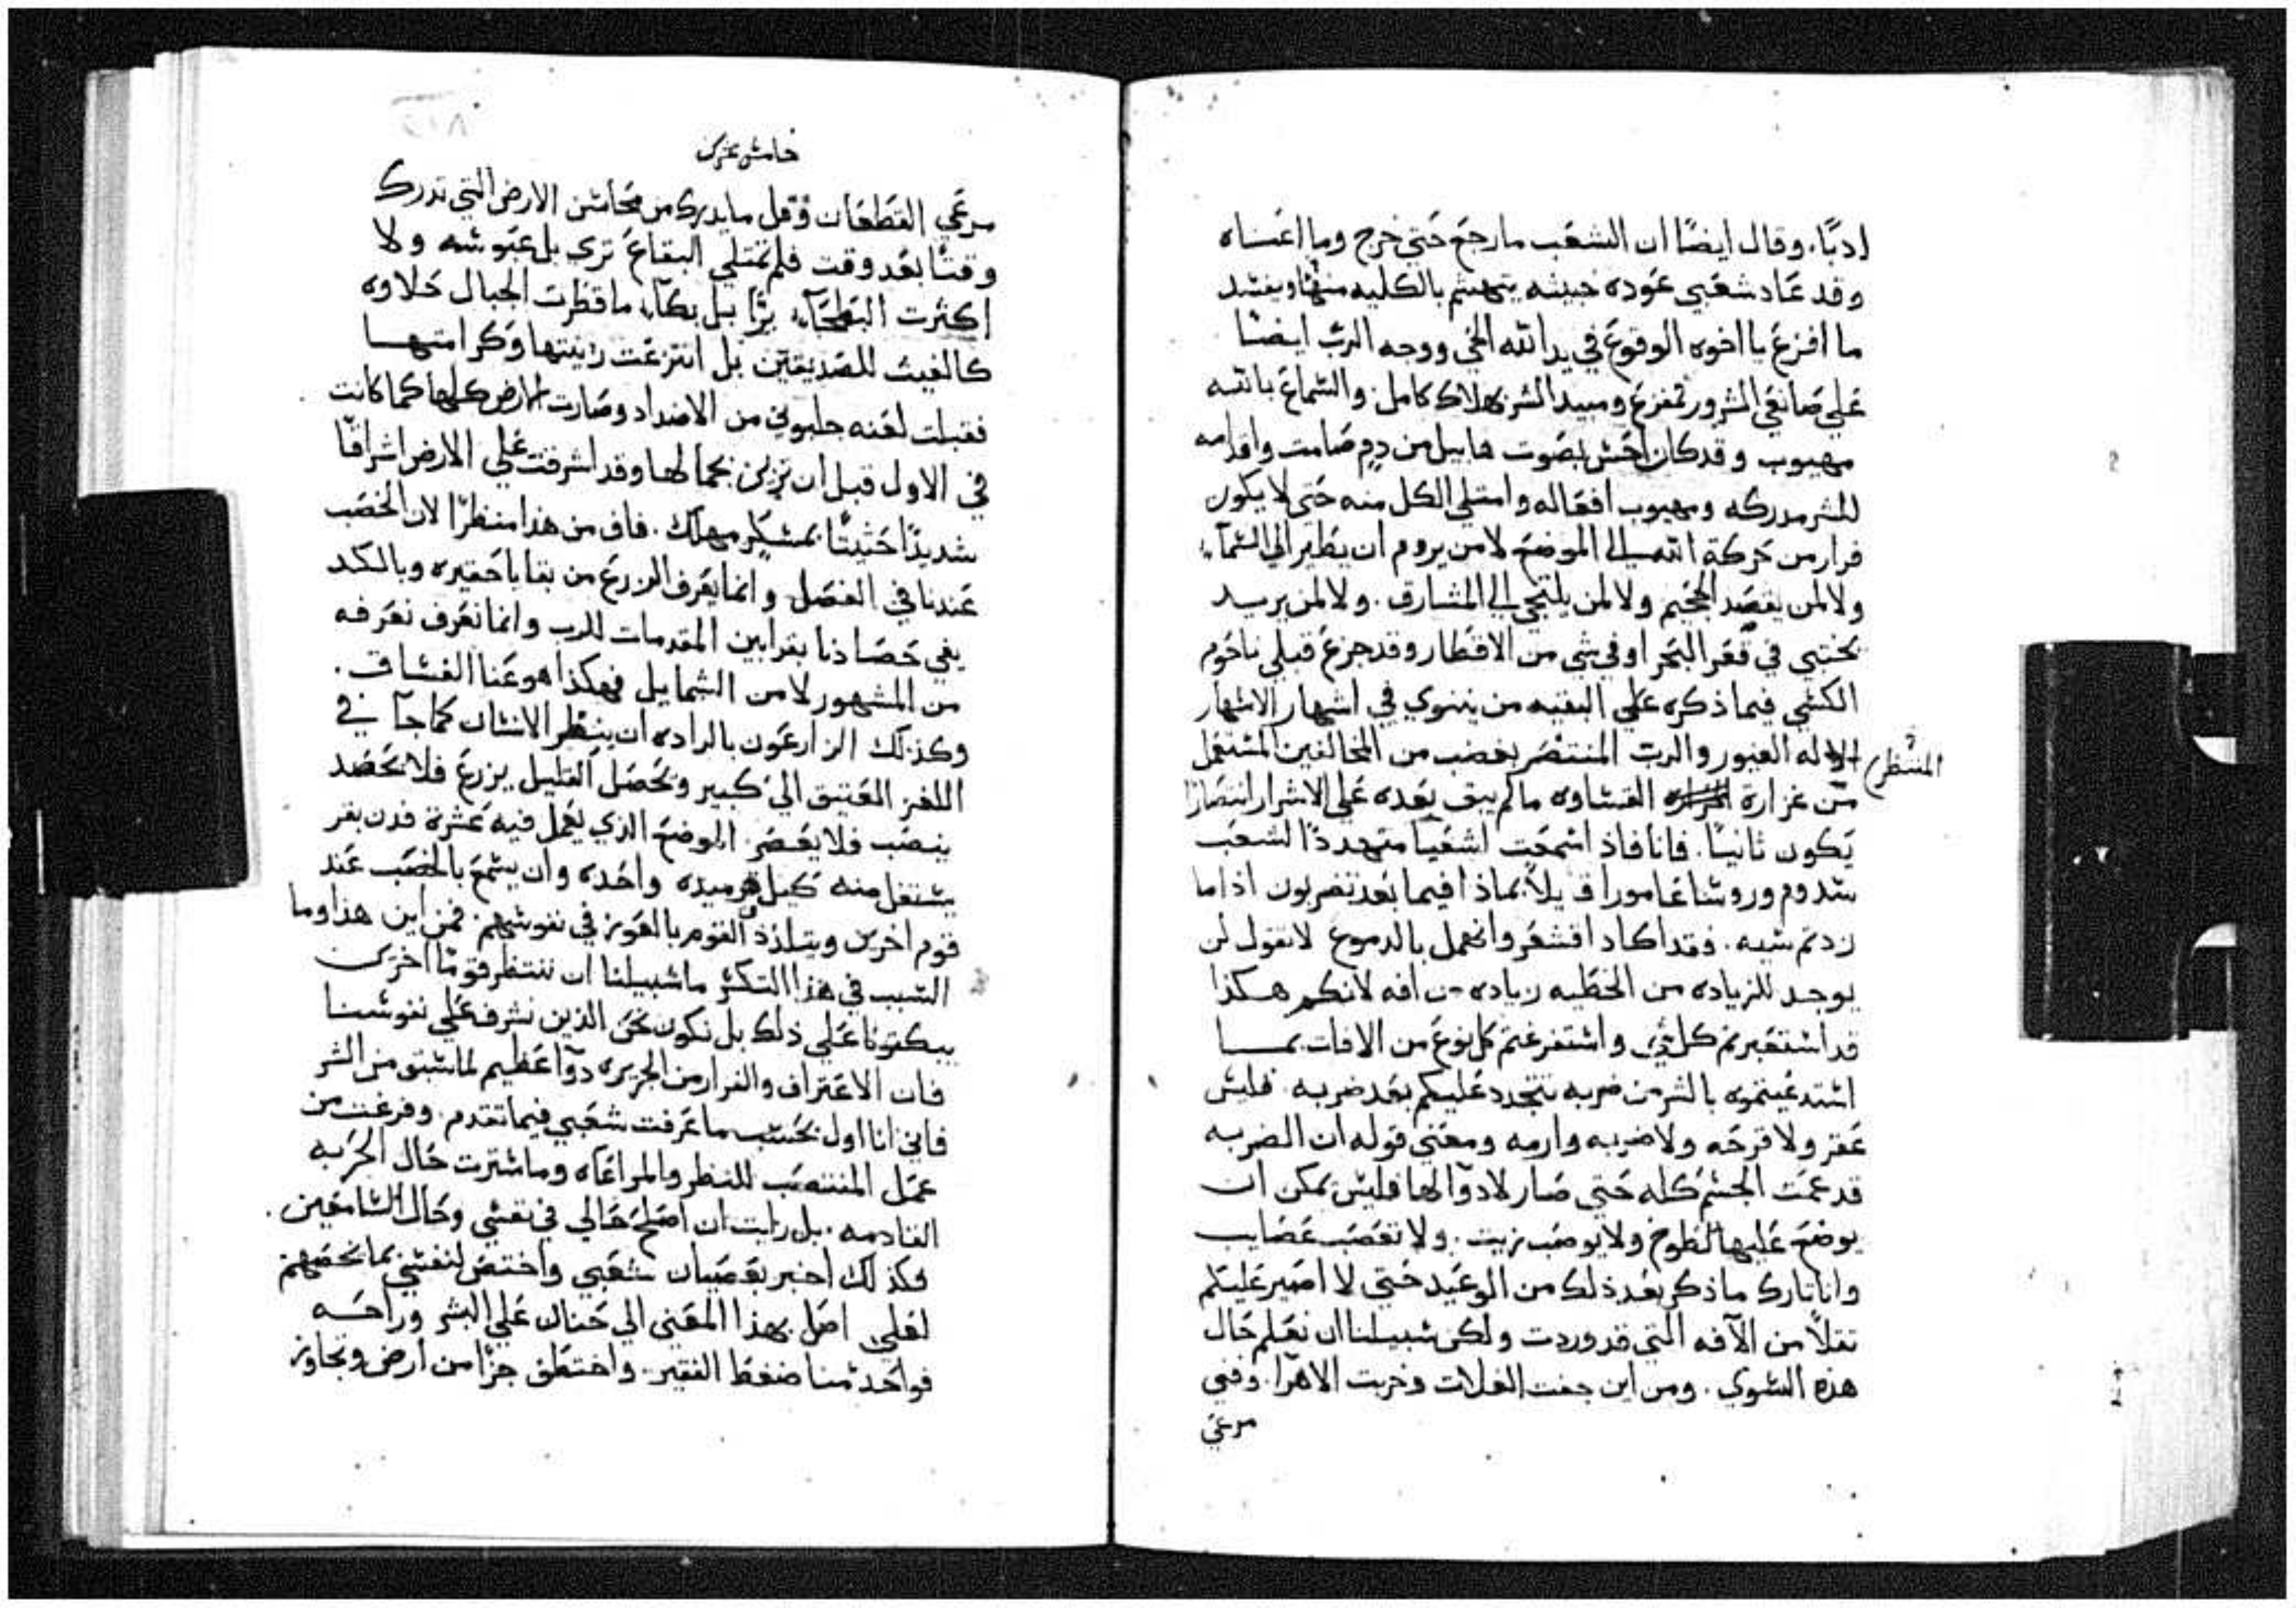 ادبًا. وقال ايضًا ان الشعب ما رجع حتي خرج وما اغناه
وقد عاد شعبي عوده خبيثه يتهشم بالكليه منها ويفسد
ما افزع يا اخوه الوقوع في يد الله الحي ووجه الرب ايضًا
علي صانعي الشرور تمفزع ومبيد الشر بهلاك كامل. والسماع بالله
مهبوب وقد كان احس بصوت هابيل من دم صامت واقدامه
للشر مدركه ومهبوب افعاله وامتلي الكل منه حتي لا يكون
فرار من حركة الله الي الموضع لا من يروم ان يطير الي السماء
ولا لمن يقصد الجحيم ولا لمن يلتجي الي المشارق. ولا لمن يريد
يختبي في قعر البحر او في شي من الاقطار وقد جزع قبلي ناحوم
الكشي فيما ذكره علي البقيه من نينوي في اشهار الاشهار
الاله الغيور والرب المنتصر بغضب من المخالفين المستعمل
المنتظر
من غزارة القساوه ما لم يبق بعده علي الاشرار انتصارًا
يكون ثانيًا. فانا فاذ اسمعت اشعيا متهددًا لشعب
سدوم وروسا عامورا قايلاً بماذا فيما بعد تضربون اذا ما
زدتم سيه. فقد اكاد اقشعر وانهمل بالدموع لا نقول لن
يوجد للزياده من الخطيه زياده من افه لانكم هكذا
قد استعبرتم كل شي واستفرغتم كل نوع من الافات بما
استدعيتموه بالشر من ضربه تتجدد عليكم بعد ضربه. فليس
عقر ولا قرحه ولا ضربه وارمه ومعني قوله ان الضربه
قد عمت الجسم كله حتي صار لا دوآ لها فليس يمكن ان
يوضع عليها لطوخ ولا يوصب زيت. ولا تعصب عصايب
وانا تارك ما ذكر بعد ذلك من الوعيد حتي لا اصير عليكم
تقلاً من الآفه التي قد وردت ولكن سبيلنا ان نعلم حال
هذه الشوي. ومن اين جفت الغلات وخربت الاهرا. وفني
مرعي
خامس عشر
مرعي القطعان وقل ما يدرك من محاسن الارض التي تدرك
وقتًا بعد وقت فلم تمتلي البقاع تري بل عبوسه ولا
اكثرت البطحآء برًا بل بكآء ما قطرت الجبال حلاوه
كالغيث للصديقين بل انتزعت زينتها وكرامتها
فقبلت لعنه جلبوني من الاضداد وصارت الارض كلها كما كانت
في الاول قبل ان تزين بجمالها وقد اشرفت علي الارض اشرافًا
شديدًا حثيثًا بمسكر مهلك. فاف من هذا منظرًا لان الخصب
عندنا في الفصل وانما يعرف الزرع من بقايا حقيره وبالكد
يفي حصادنا بقرابين المقدمات للرب وانما نعرف نعرفه
من المشهور لا من الشمايل فهكذا هو غنا الفساق.
وكذلك الزارعون بالراده ان ينتظر الانسان كما جآ في
اللغز العتيق الي كبير ويحصل القليل يزرع فلا يحصد
ينصب فلا يعصر الموضع الذي يعمل فيه عشرة فدن بقر
يستغل منه كيل قرميده واحده وان يسمع بالخصب عند
قوم اخرين ويتلذذ القوم بالعوز في نفوسهم. فمن اين هذا وما
السبب في هذا التكسر ما سبيلنا ان ننتظر قومًا اخرين
يبكتونا علي ذلك بل نكون نحن الذين نشرف علي نفوسنا
فان الاعتراف والفرار من الجريره دوآ عظيم لما سبق من الشر
فاني انا اول بحسب ما عرفت شعبي فيما تقدم. وفرغت من
عمل المنتصب للنظر والمراعاه وما سترت حال الحربه
القادمه. بل رايت ان اصلح حالي في نفسي وحال السامعين.
فكذلك اخبر بعصيان شعبي واختص لنفسي بما يخصهم
لعلي اصل بهذا المعني الي حنان علي البشر وراحه
فواحد منا ضغط الفقير. واختطف جزًا من ارض وتجاوز